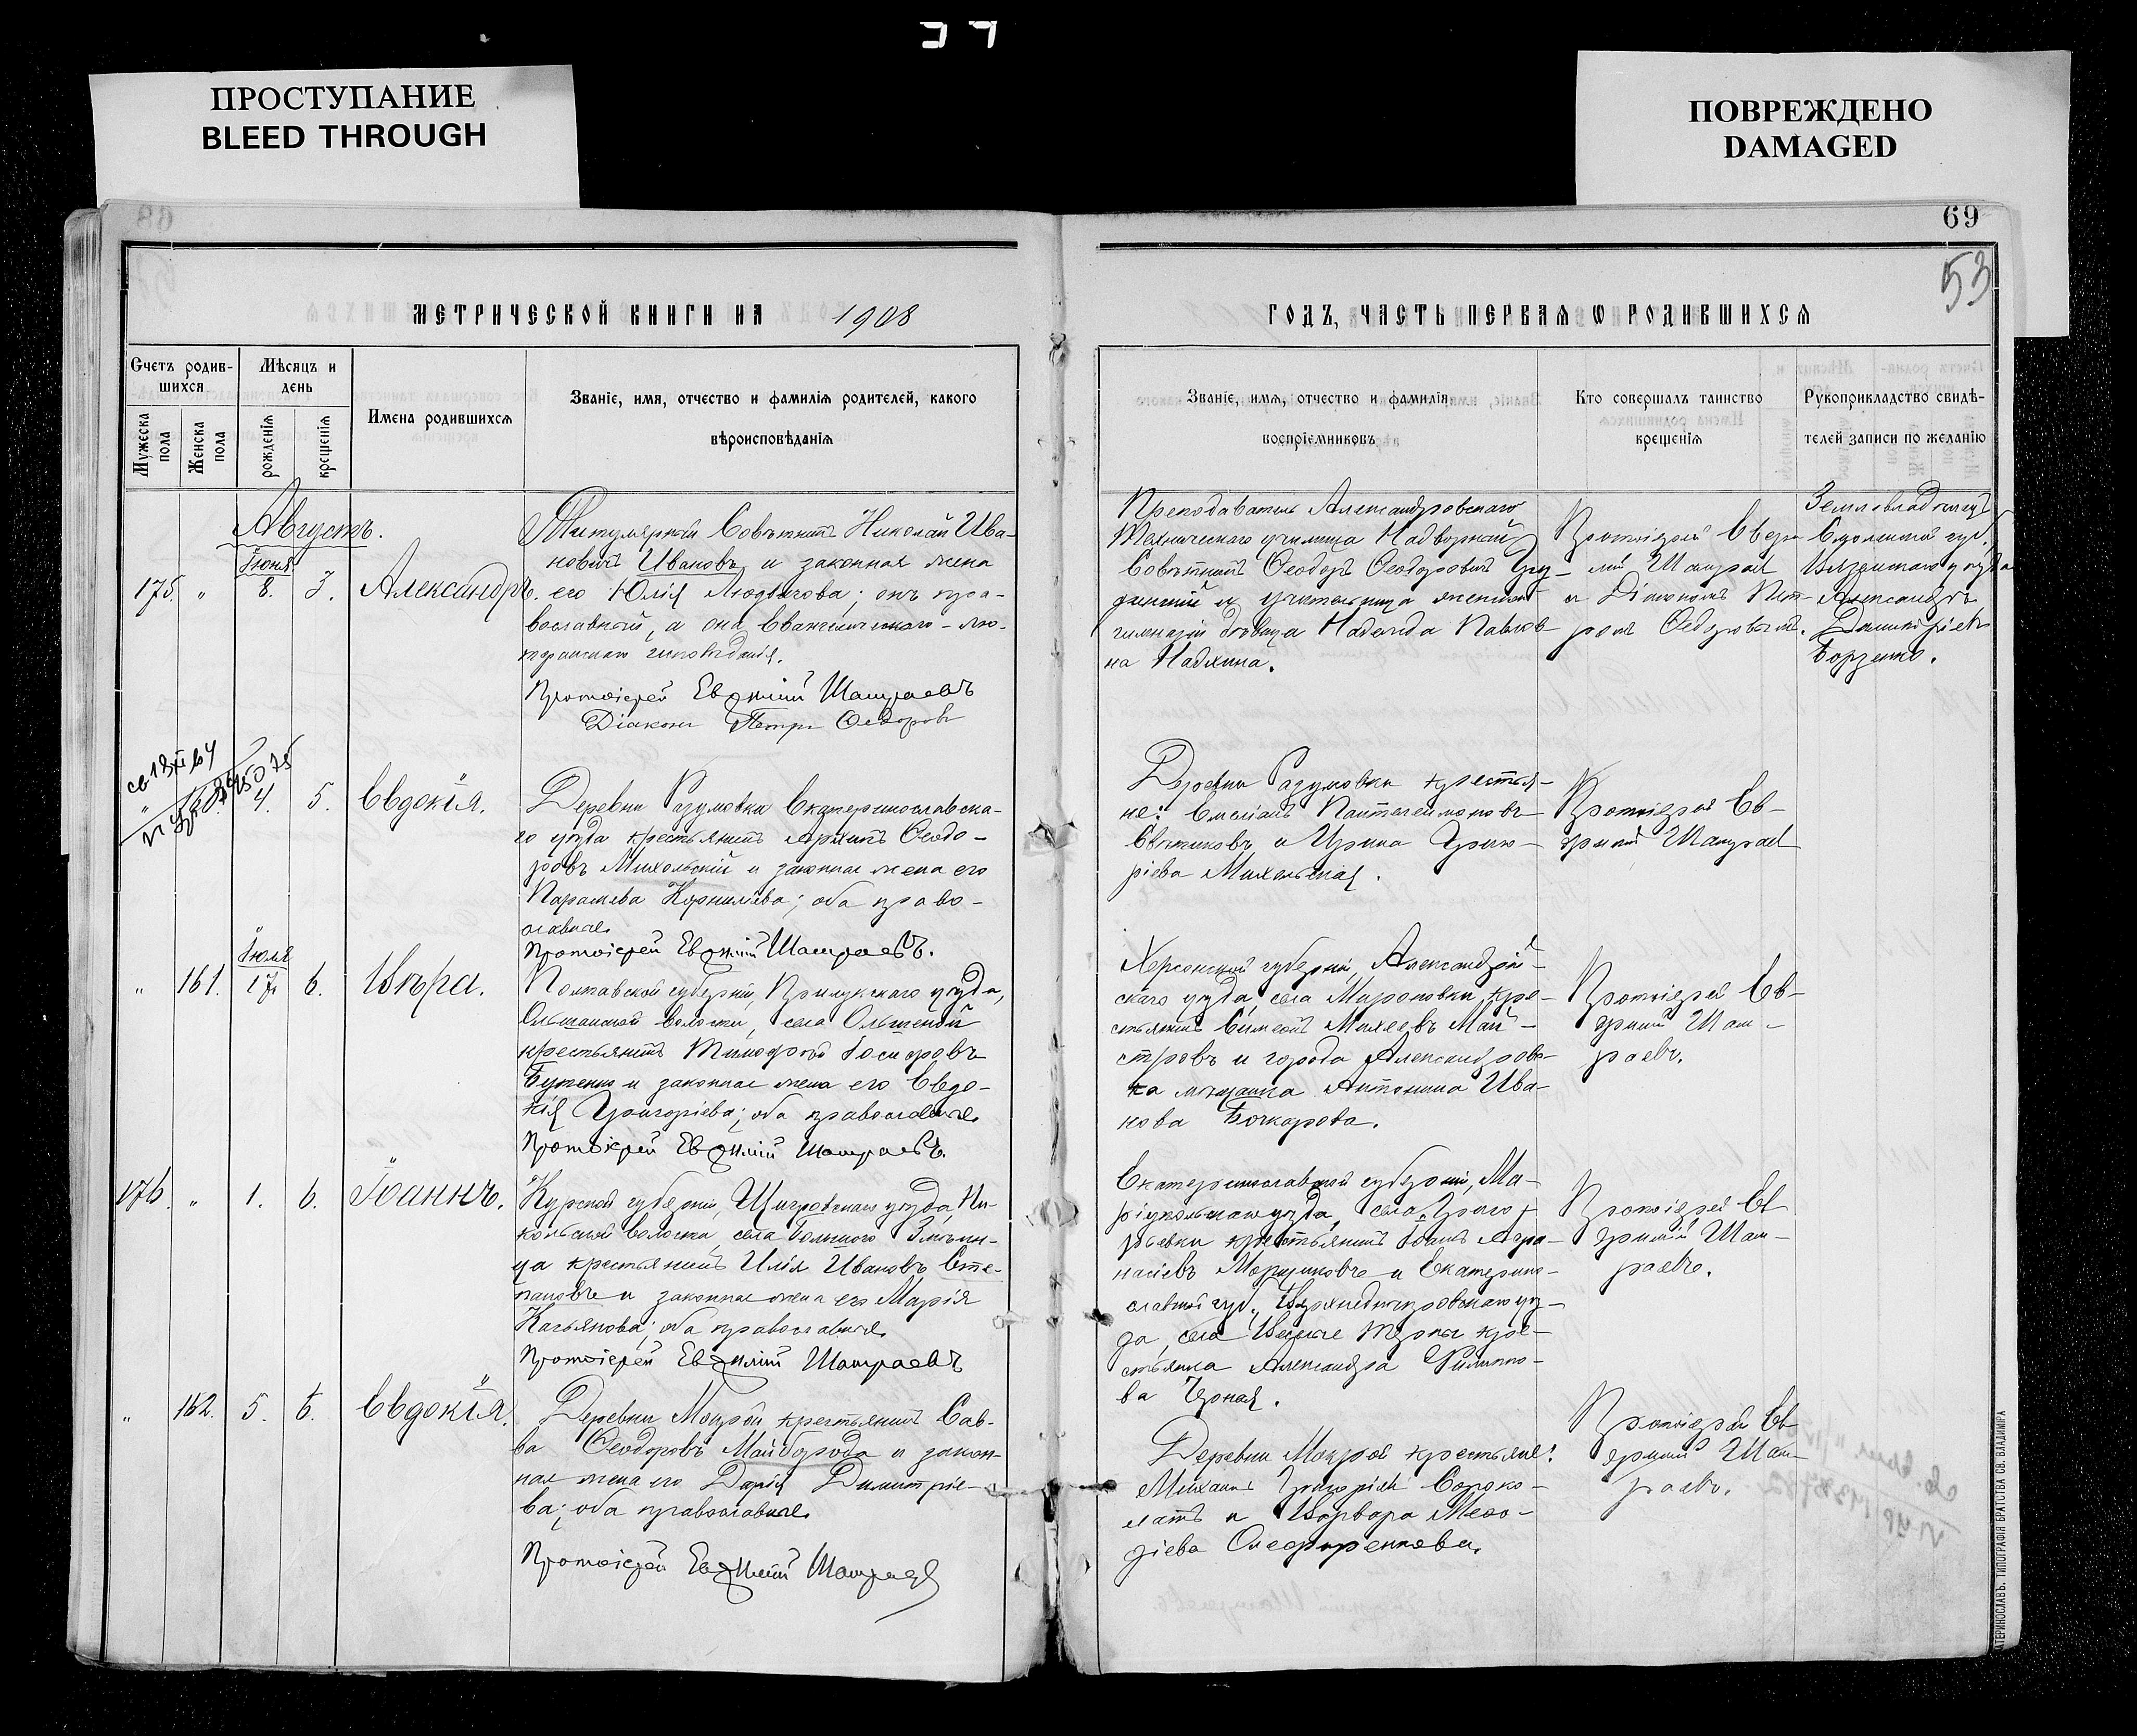 ПРОСТУПАНИЕ
BLEED THROUGH
ПОВРЕЖДЕНО
DAMAGED
69
53
МЕТРИЧЕСКОЙ КНИГИ НА 1908
ГОДЪ, ЧАСТЬ ПЕРВАЯ Ѡ РОДИВШИХСЯ
Счетъ родив-
шихся
Мужеска пола
Женска пола
Мѣсяцъ и
день
рожденія
крещенія
Имена родившихся
Званіе, имя, отчество и фамилія родителей, какого
вѣроисповѣданія
Званіе, имя, отчество и фамилія
воспріемниковъ
Кто совершалъ таинство
крещенія
Рукоприкладство свидѣ-
телей записи по желанію
Августъ.
175. " Іюня 8. 3. Александръ.
Титулярный Совѣтникъ Николай Ива-
новичъ Ивановъ и законная жена
его Юлія Людвигова; онъ пра-
вославный, а она Евангелическо-лю-
теранскаго исповѣданія.
Протоіерей Евѳимій Шатраевъ
Діаконъ Петръ Ѳедоровъ
Преподаватель Александровскаго
Техническаго училища Надворный
Совѣтникъ Ѳеодоръ Ѳеодоровичъ
и учительница женской
гимназіи дѣвица Надежда Павлов-
на
Протоіерей Евѳи-
мій Шатраев
и Діаконъ Пет-
ромъ Ѳедоровымъ.
Землевладѣлецъ
Смоленской губ.
Вяземскаго уѣзда
Александръ
Димитріевъ
Борзенко.
" 4. 5. Евдокія.
Деревни Разумовки Екатеринославска-
го уѣзда крестьянинъ Архипъ Ѳеодо-
ровъ Михольскій и законная жена его
Параскева Корниліева; оба право-
славные.
Протоіерей Евѳимій Шатраевъ.
Деревни Разумовки крестья-
не: Емеліанъ Пантелеимоновъ
и Ирина Григо-
ріева
Протоіерей Ев-
ѳимій Шатраев
" 161. Іюля 17. 6. Вѣра.
Полтавской губерніи, Прилукскаго уѣзда,
Ольшанской волости, села Ольшаной
крестьянинъ Тимофей Іосифовъ
Бутенко и законная жена его Евдо-
кія Григоріева; оба православные.
Протоіерей Евѳимій Шатраевъ.
Херсонской губерніи, Александрій-
скаго уѣзда, села Мироновки кре-
стьянинъ Симеонъ Михеевъ Май-
стровъ и города Александровс-
ка мѣщанка Антонина Ива-
нова Бочкарова.
Протоіерей Ев-
ѳимій Шат-
раевъ.
176. " 1. 6. Іоаннъ.
Курской губерніи, Щигровскаго уѣзда, Ни-
кольской волости, села Большого Змѣин-
ца крестьянинъ Илія Ивановъ Сте-
пановъ и законная жена его Марія
Касьянова; оба православные.
Протоіерей Евѳимій Шатраевъ
Екатеринославской губерніи, Ма-
ріупольскаго уѣзда, села Григо-
рьевки крестьянинъ Іоаннъ Аѳа-
насіевъ и Екатерино-
славской губ., Верхнеднѣпровскаго уѣз-
да, села Веселые Терны кре-
стьянка Александра Филиппо-
ва Черная.
Протоіерей Ев-
ѳимій Шат-
раевъ.
" 162. 5. 6. Евдокія.
Деревни Мокрой крестьянинъ Сав-
ва Ѳеодоровъ Майборода и закон-
ная жена его Дарія Димитріе-
ва; оба православные.
Протоіерей Евѳимій Шатраев
Деревни Мокрой крестьяне:
Михаилъ Григоріевъ Сороко-
латъ и Варвара Меѳо-
діева Олеференкова.
Протоіерей Ев-
ѳимій Шат-
раевъ.
ТИПОГРАФІЯ БРАТСТВА СВ. ВЛАДИМІРА